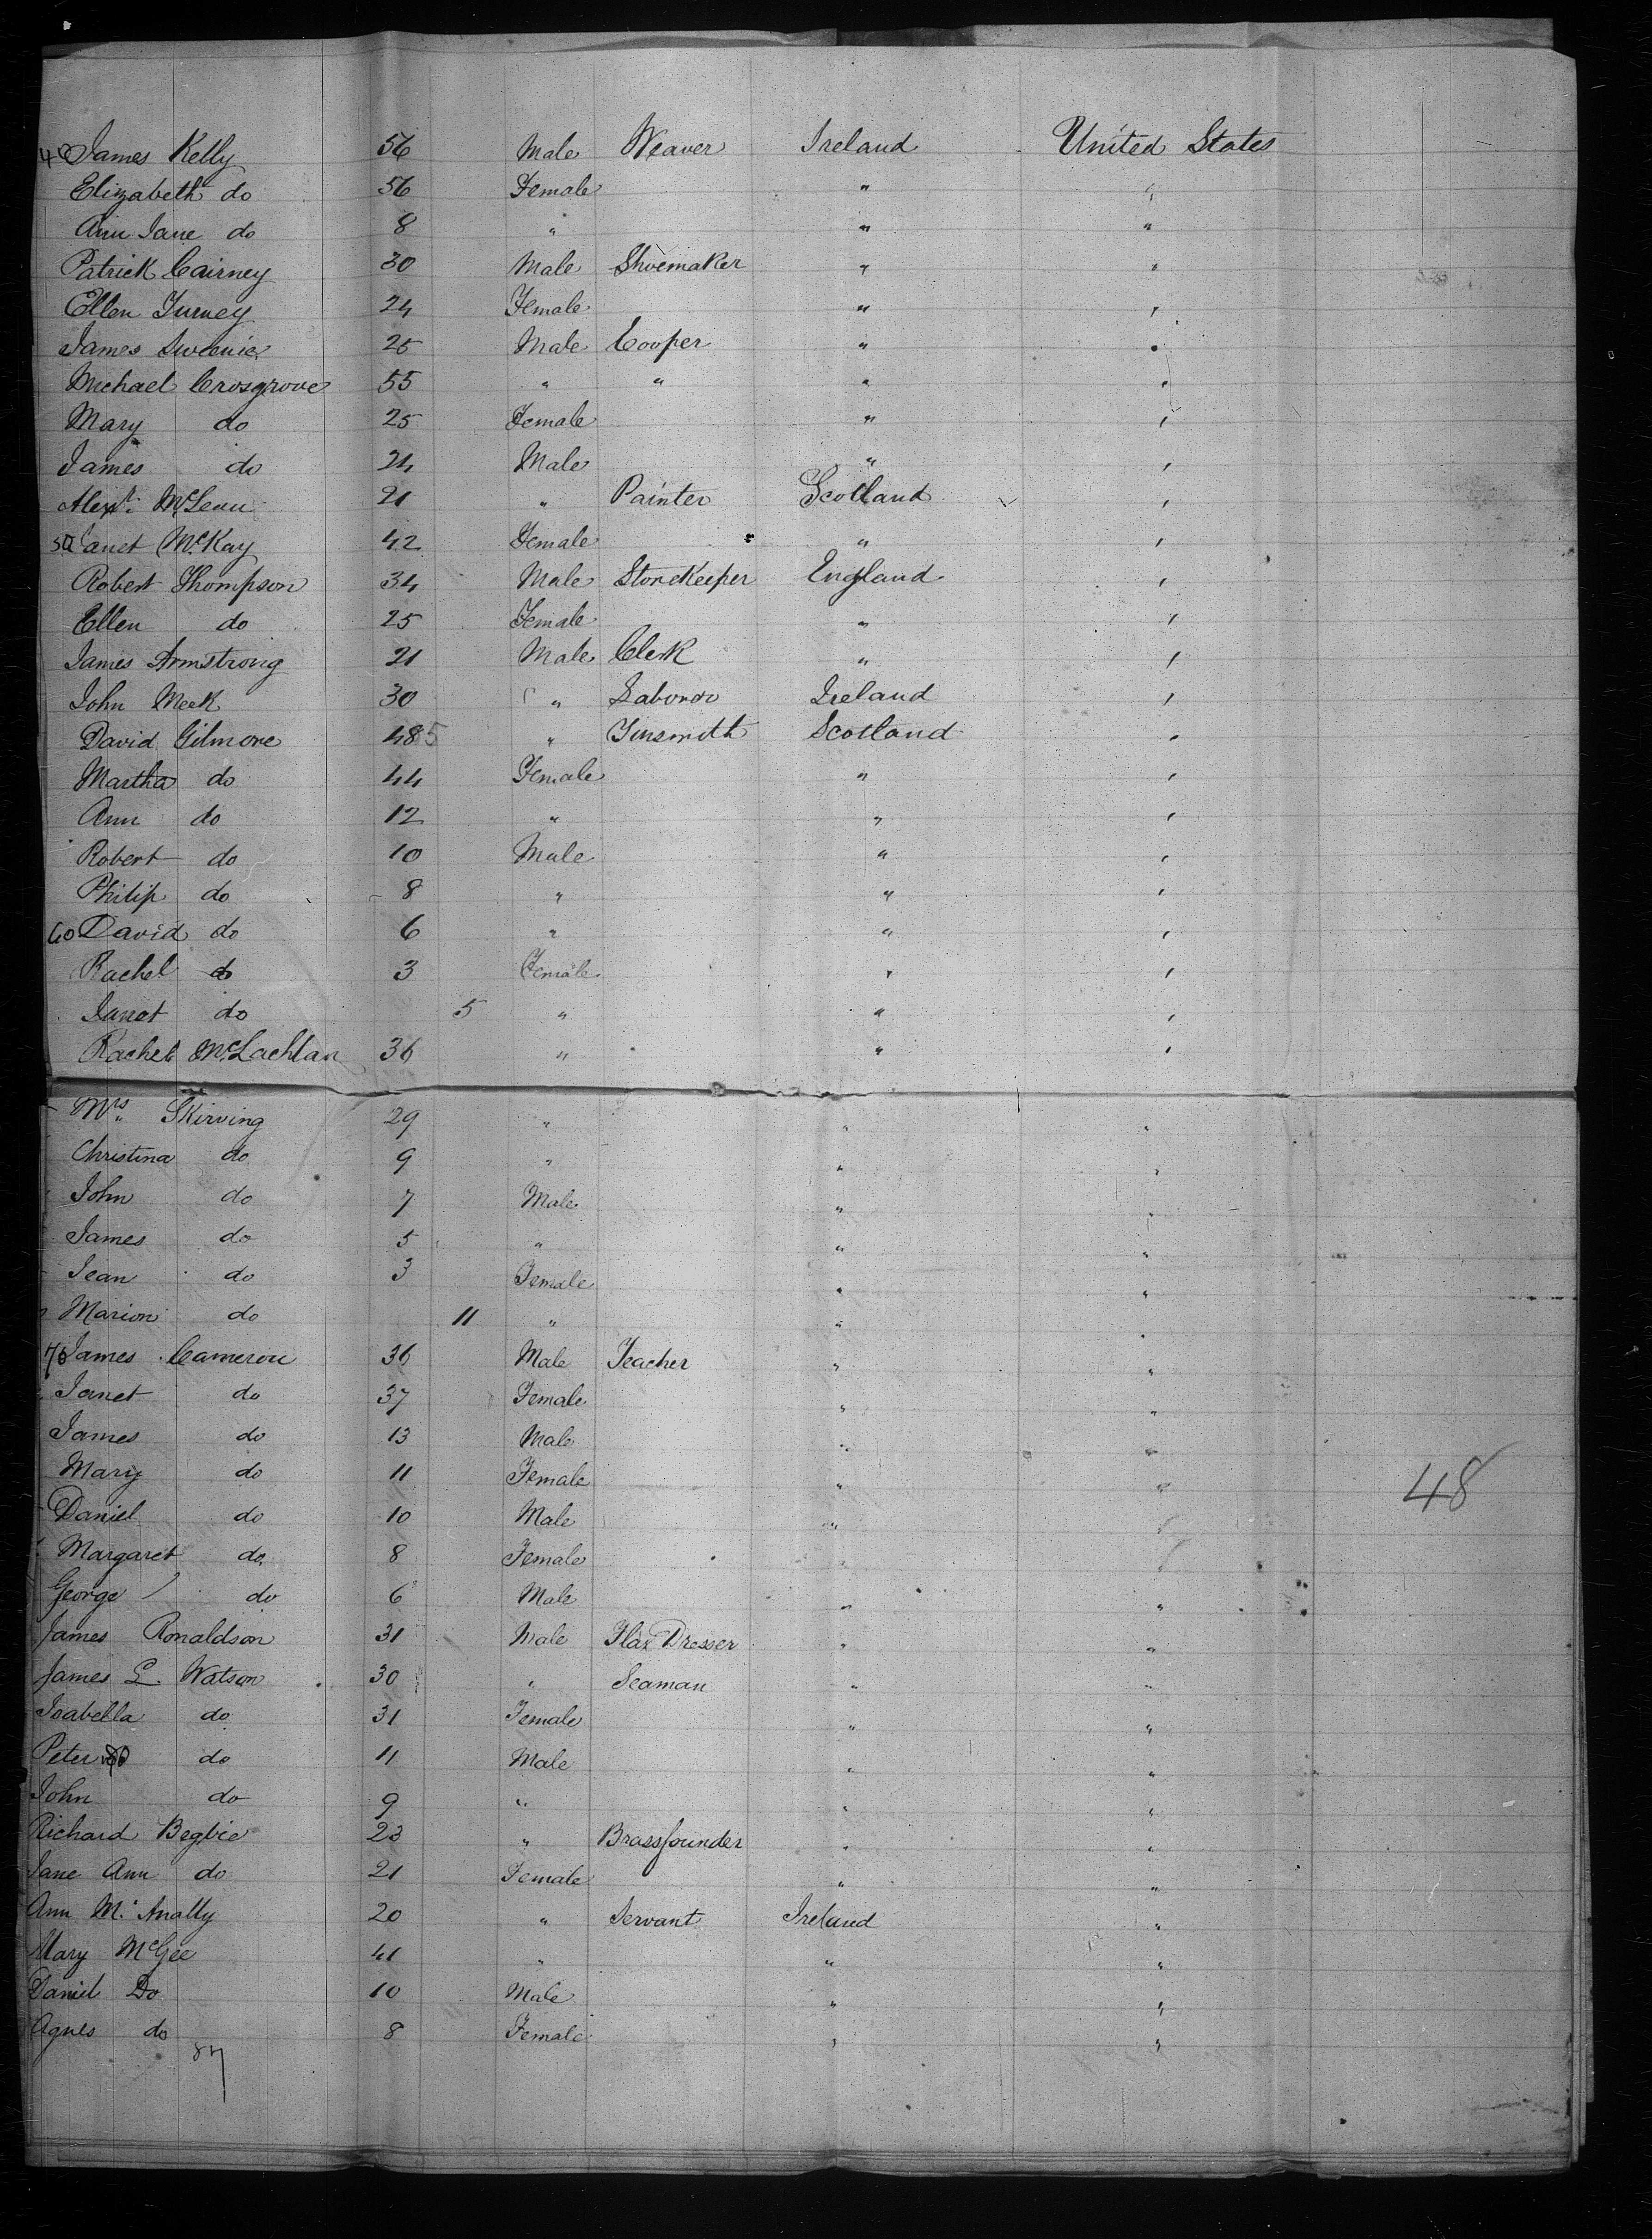 40 James Kelly 56 Male Weaver Ireland United States
Elizabeth do 56 Female " "
Ann Jane do 8 " " "
Patrick Cairney 30 Male Shoemaker " "
Ellen Turney 24 Female " "
James Sweenie 25 Male Cooper " "
Michael Crosgrove 55 " " " "
Mary do 25 Female " "
James do 24 Male " "
Alexr. McLean 21 " Painter Scotland "
50 Janet McKay 42 Female " "
Robert Thompson 34 Male Storekeeper England "
Ellen do 25 Female " "
James Armstrong 21 Male Clerk " "
John Meek 30 " Laborer Ireland "
David Gilmore 48 5 " Tinsmith Scotland "
Martha do 44 Female " "
Ann do 12 " " "
Robert do 10 Male " "
Philip do 8 " " "
60 David do 6 " " "
Rachel do 3 Female " "
Janet do 5 " " "
Rachel McLachlan 36 " " "
Mrs. Skirving 29 " " "
Christina do 9 " " "
John do 7 Male " "
James do 5 " " "
Jean do 3 Female " "
Marion do 11 " " "
70 James Cameron 36 Male Teacher " "
Janet do 37 Female " "
James do 13 Male " "
Mary do 11 Female " "
48
Daniel do 10 Male " "
Margaret do 8 Female " "
George do 6 Male " "
James Ronaldson 31 Male Flax Dresser " "
James L. Watson 30 " Seaman " "
Isabella do 31 Female " "
Peter 80 do 11 Male " "
John do 9 " " "
Richard Begbie 23 " Brassfounder " "
Jane Ann do 21 Female " "
Ann McAnally 20 " Servant Ireland "
Mary McGee 41 " " "
Daniel Do 10 Male " "
Agnes do 8 Female " "
87